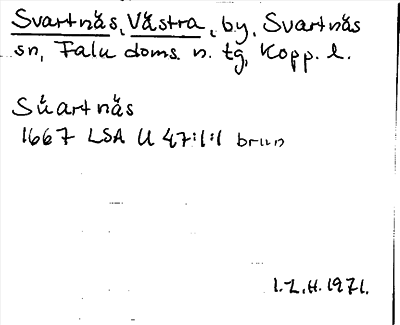 Svartnäs, Västra, by, Svartnäs
sn, Falu doms. n. tg, Kopp. l.
Súartnäs
1667 LSA U 47:1:1 brun
I.Z.H. 1971.